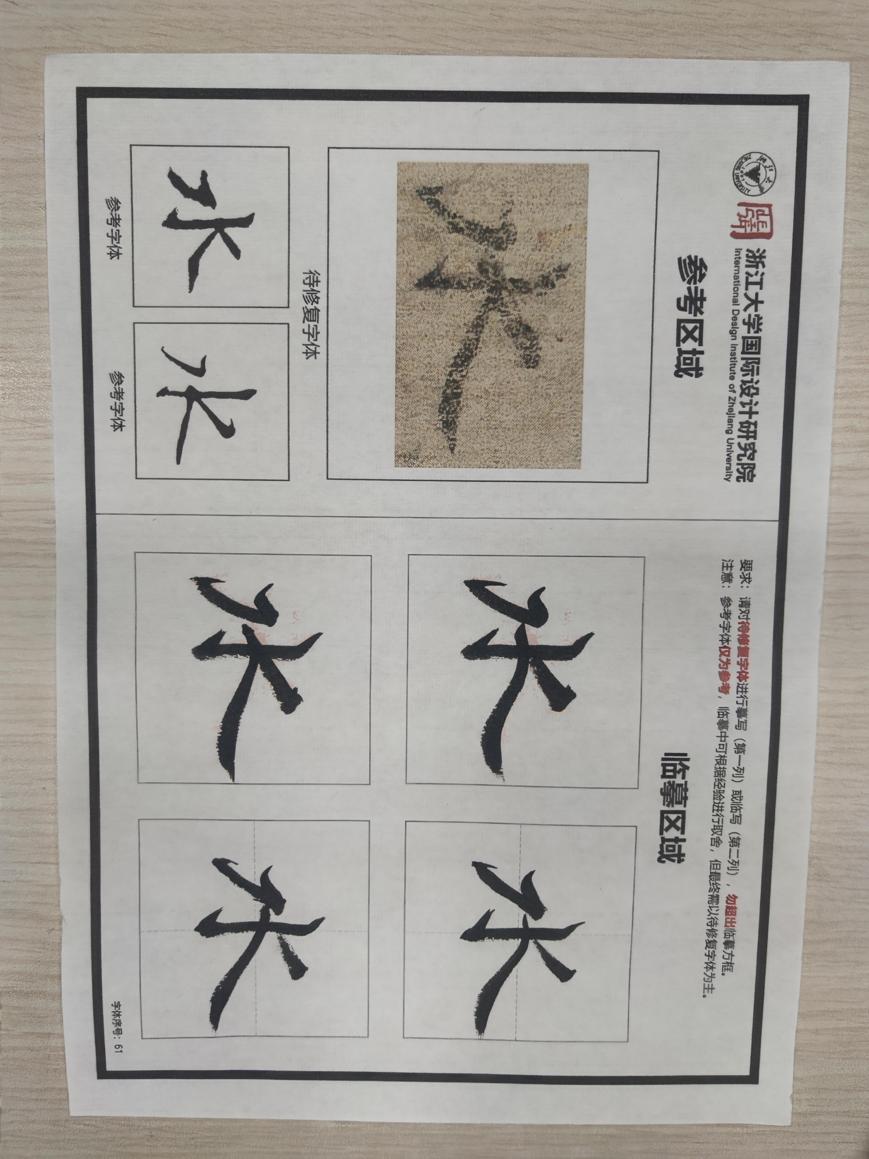 浙江大学国际设计研究院
International Design Institute of Zhejiang University
参考区域
水
待修复字体
水 水
参考字体 参考字体
要求：请对待修复字体进行摹写（第一列）或临写（第二列），勿超出临摹方框。
注意：参考字体仅为参考，临摹中可根据经验进行取舍，但最终需以待修复字体为主。
临摹区域
水 水
水 水
字体序号：61